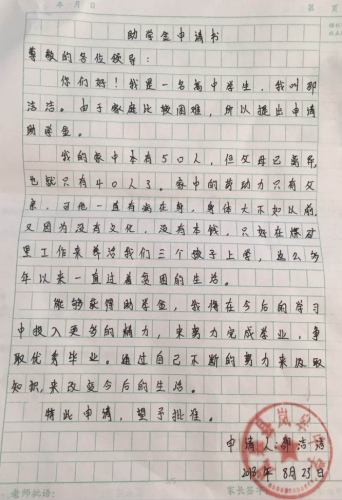 年 月 日 第 页
助学金申请书
尊敬的各位领导：
你们好！我是一名高中学生，我叫郭
洁洁。由于家庭比较困难，所以提出申请
助学金。
我的家中本有50人，但父母已离异，
也就只有40人了。家中的劳动力只有父
亲，可他一直有病在身，身体大不如以前，
又因为没有文化，没有本钱，只好在煤矿
里工作来养活我们三个孩子上学，这么多
年以来一直过着贫困的生活。
能够获得助学金，我将在今后的学习
中投入更多的精力，来努力完成学业，争
取优秀毕业。通过自己不断的努力来汲取
知识来改变今后的生活。
特此申请，望予批准。
申请人：郭洁洁
年8月23日
老师批语： 家长签